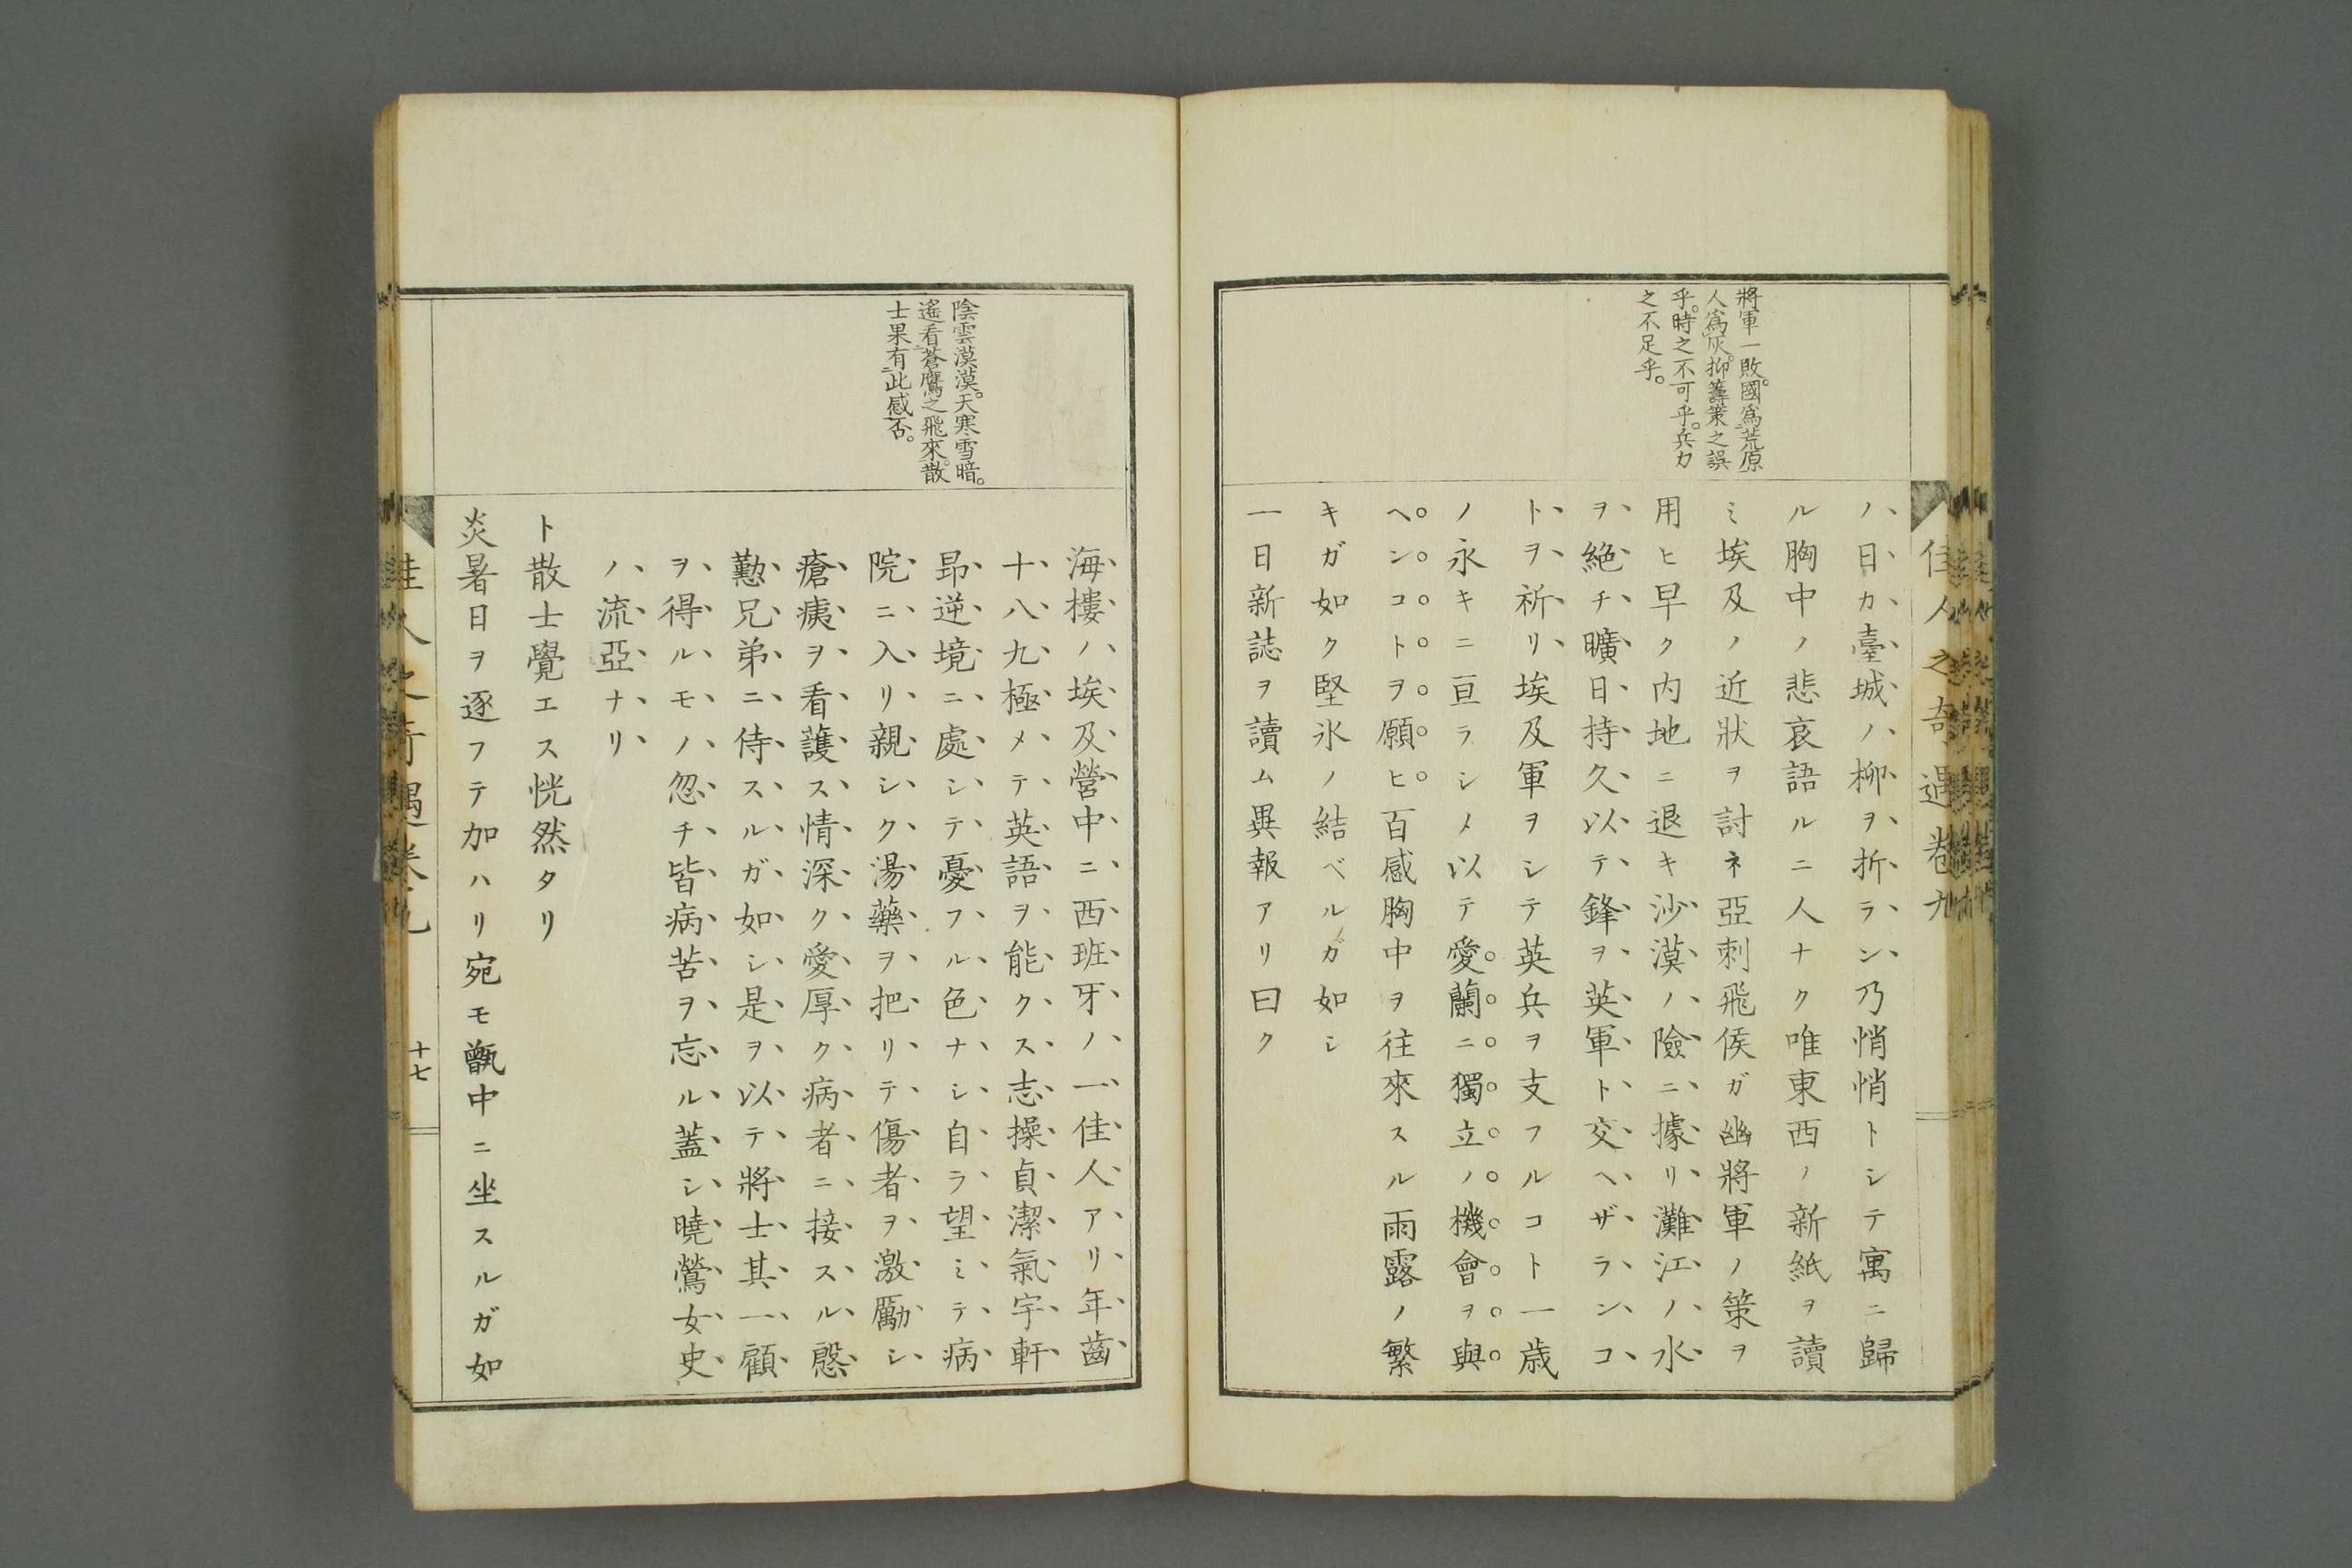 佳人之奇遇卷九
將軍一敗。國爲荒原
人爲灰。抑籌策之誤
乎。時之不可乎。兵力
之不足乎。
ハ日カ臺城ノ柳ヲ折ラン乃悄悄トシテ寓ニ歸
ル胸中ノ悲哀語ルニ人ナク唯東西ノ新紙ヲ讀
ミ埃及ノ近狀ヲ討ネ亞刺飛侯ガ幽將軍ノ策ヲ
用ヒ早ク内地ニ退キ沙漠ノ險ニ據リ灘江ノ水
ヲ絶チ曠日持久以テ鋒ヲ英軍ト交ヘザランコ
トヲ祈リ埃及軍ヲシテ英兵ヲ支フルコト一歳
ノ永キニ亘ラシメ以テ愛蘭ニ獨立ノ機會ヲ與
ヘンコトヲ願ヒ百感胸中ヲ往來スル雨露ノ繁
キガ如ク堅氷ノ結ベルガ如シ
一日新誌ヲ讀ム異報アリ曰ク
陰雲漠漠。天寒雪暗。
遙看蒼鷹之飛來。散
士果有此感否。
海樓ノ埃及營中ニ西班牙ノ一佳人アリ年齒
十八九極メテ英語ヲ能クス志操貞潔氣宇軒
昂逆境ニ處シテ憂フル色ナシ自ラ望ミテ病
院ニ入リ親シク湯藥ヲ把リテ傷者ヲ激勵シ
瘡痍ヲ看護ス情深ク愛厚ク病者ニ接スル慇
懃兄弟ニ侍スルガ如シ是ヲ以テ將士其一顧
ヲ得ルモノ忽チ皆病苦ヲ忘ル蓋シ曉鶯女史
ノ流亞ナリ
ト散士覺エス恍然タリ
炎暑日ヲ逐フテ加ハリ宛モ甑中ニ坐スルガ如
佳人之奇遇卷九
十七